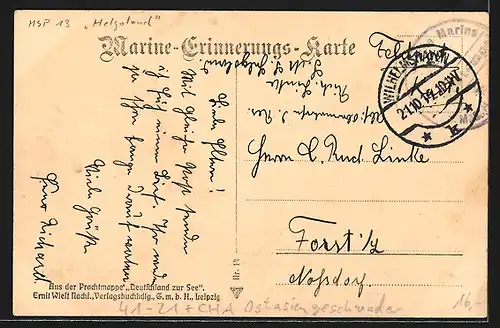 MSP 13 „Helgoland"
Marine-Erinnerungs-Karte
Feldpost
S.M.S. Helgoland
Rich. Linke
WILHELMSHAVEN
21.10.14.10-11V
* k *
Marine
Herrn C. Rud. Linke
Forst i/L
Noßdorf.
Liebe Eltern!
Mit gleicher Post sende
ich Euch einen Brief. Ihr werdet
ja schon lange darauf warten.
Viele Grüße
Euer Richard.
Nr. 14
Aus der Prachtmappe „Deutschland zur See".
Ernst Wiest Nachf., Verlagsbuchhdlg., G. m. b. H., Leipzig
41-21 + CHA Ostasiengeschwader
16,-